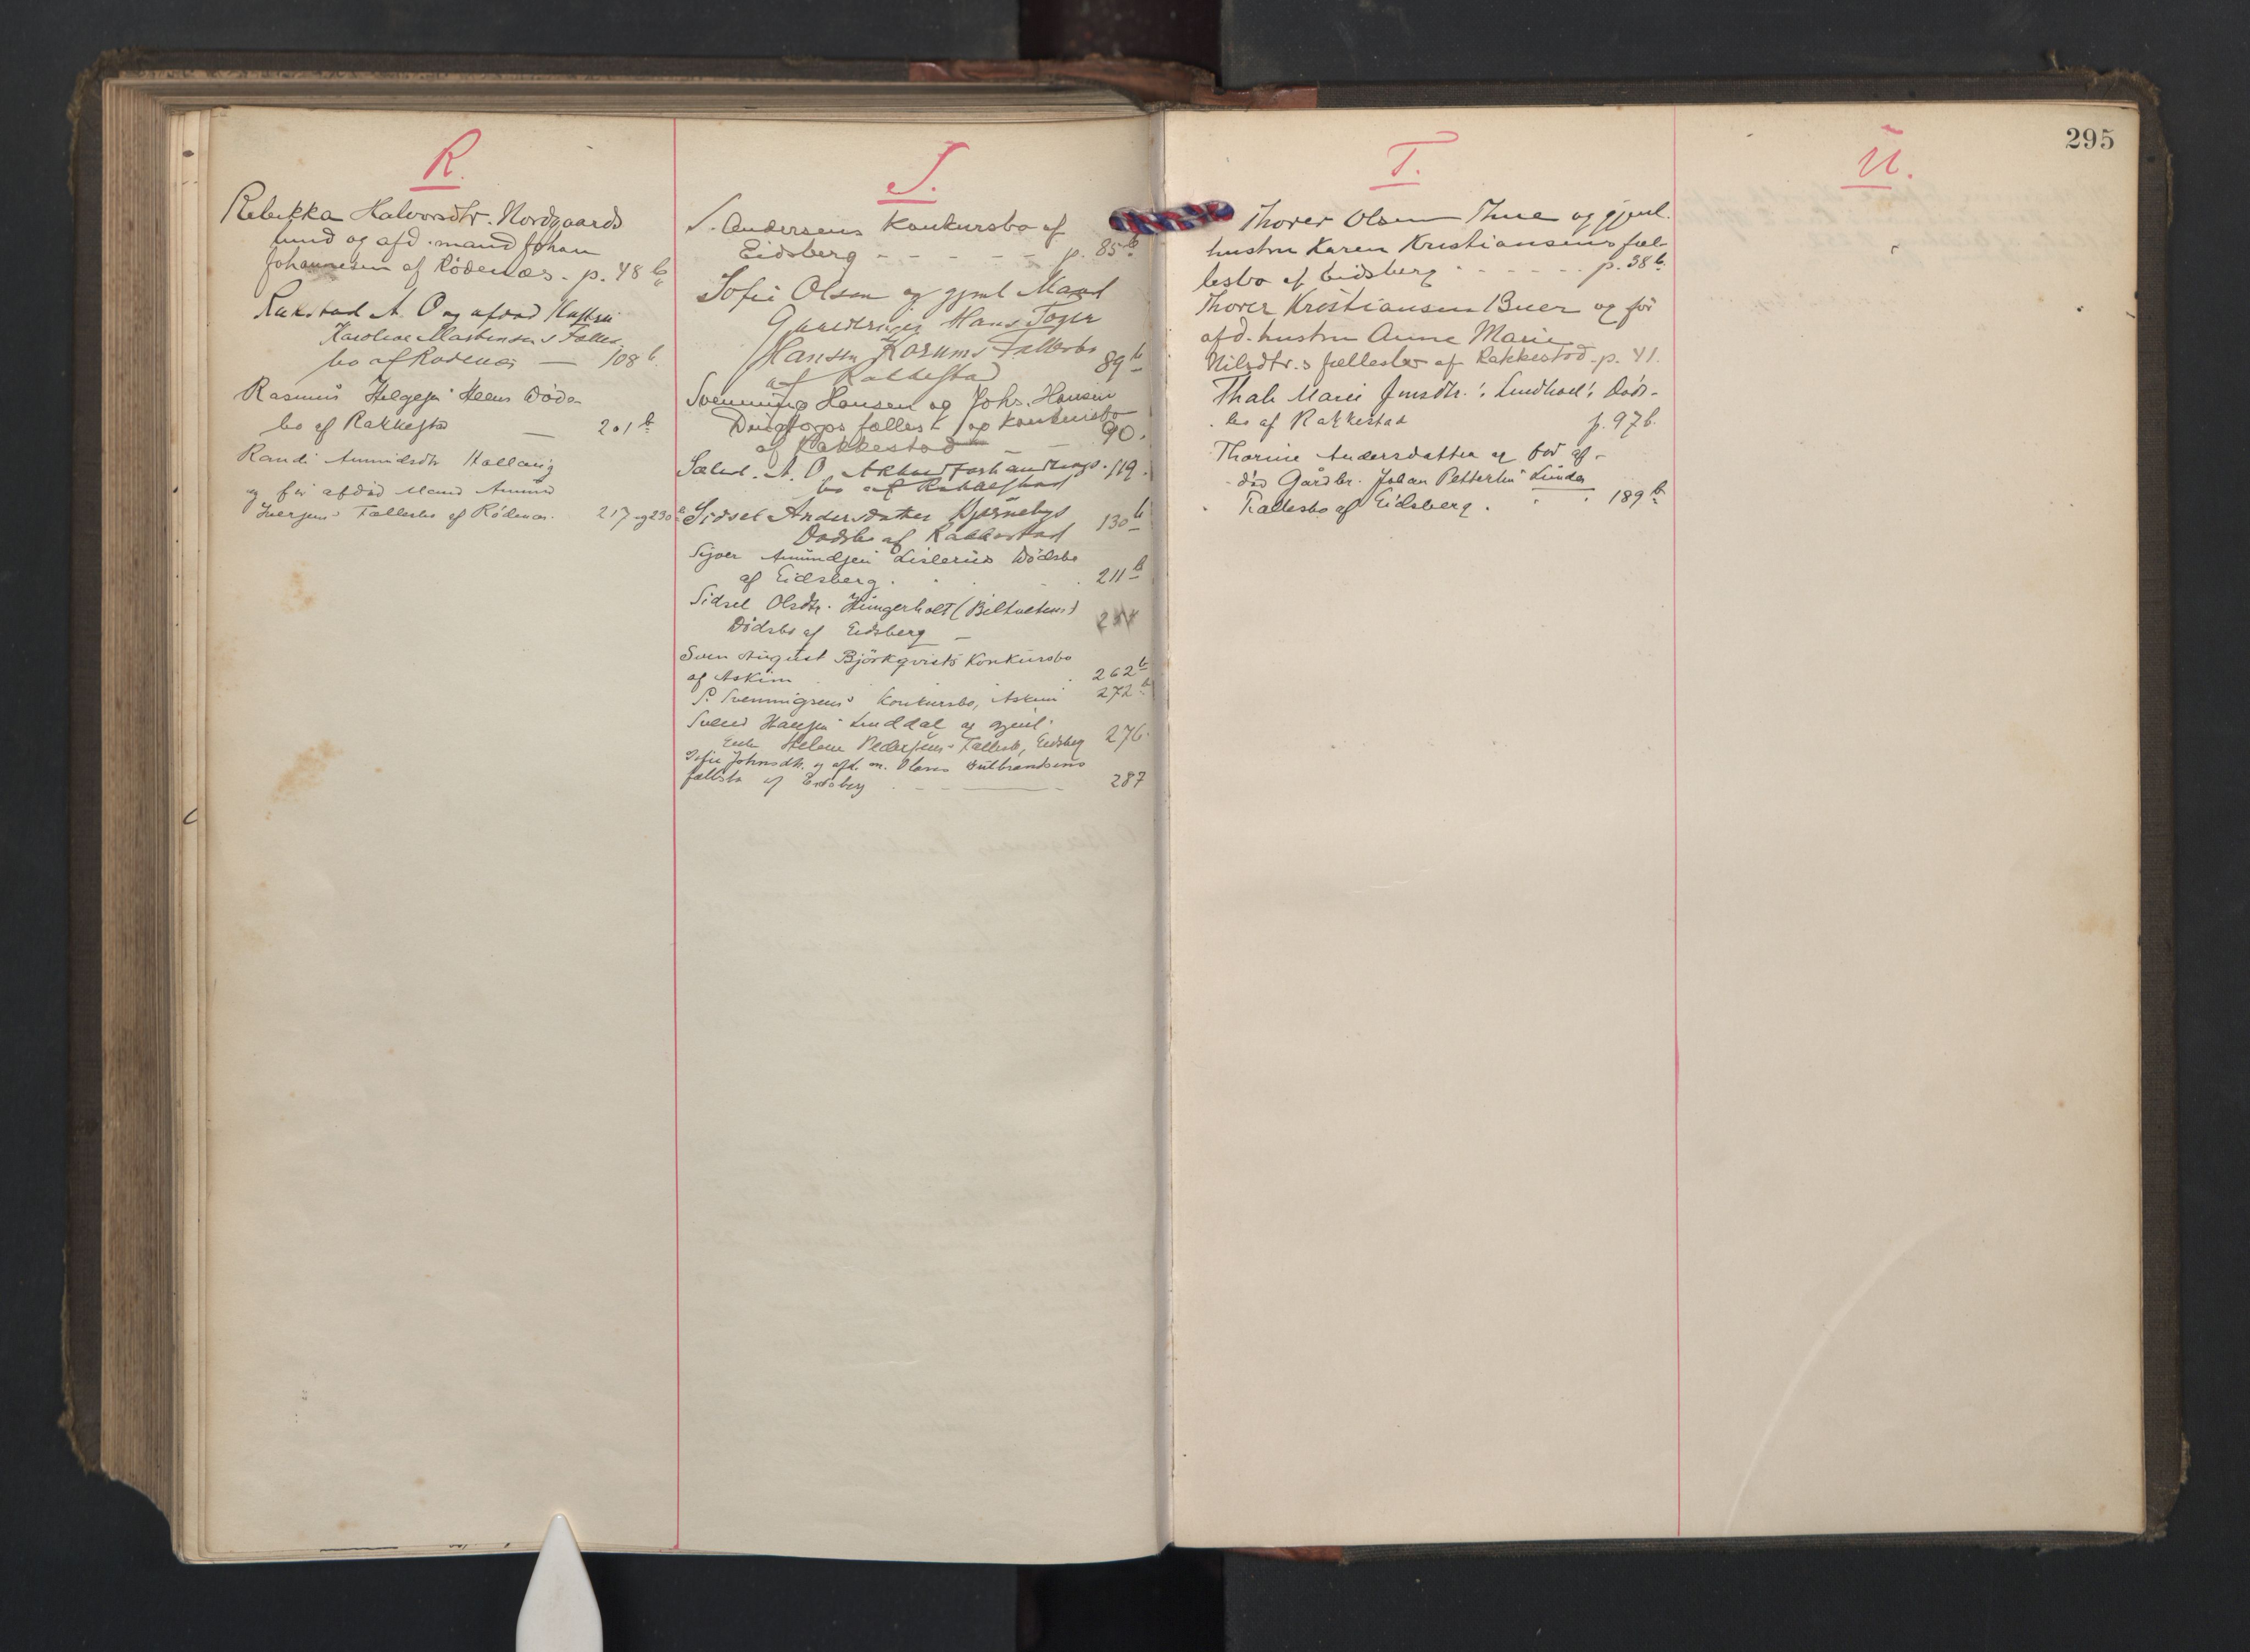 R.
Rebekka Halvorsdtr. Nordgaards
lund og afd. mand Johan
Johannesen af Rödenæs - p. 48 b
Rakstad A. O og afdød Hustru
Karoline Martinsens Fælles
bo af Rødenæs — 108 b.
Rasmus Helgesen Heens Döds
bo af Rakkestad — 201 b
Randi Amundsdtr
og før afdød Mand Amund
Iversens Fællesbo af Rødenæs. 217 og 230 b
S.
S. Andersens Konkursbo af
Eidsberg - - - - - p. 85 b.
Sofie Olsen og gjenl Mand
Gaardbruger Hans Toger
Hansen Kosums Fællesbo
af Rakkestad 89 b
Svenning Hansen og Johs. Hansen
fælles konkursbo
af Rakkestad — 90.
A. O. Akkordforhandlings- 119.
bo af Rakkestad
Sidsel Andersdatter Bjørnebys
Dødsbo af Rakkestad 130 b
Syver Amundsen Lislerus Dödsbo
af Eidsberg. 211 b
Sidsel Olsdtr. Hungerholt (Biltvetens)
Dödsbo af Eidsberg —
Sven August Björkqvists Konkursbo
af Askim 262 b
S. Svenningsens Konkursbo, Askim 272 b
Svend Hansen Linddal og gjenl.
Enke Helene Pedersens Fællesb, Eidsberg 276.
Sofie Johnsdtr. og afd. m. Olaves Gulbrandsens
fællsbo af Eidsberg 287
T.
Thorer Olsen Thue og gjenl.
hustru Karen Kristiansens fæl-
lesbo af Eidsberg - - - - - p. 38 b.
Thorer Kristiansen Buer og før
afd. hustru Anne Marie
Nilsdtr.s fællesbo af Rakkestad - p. 41.
Thale Marie Jensdtr. Døds-
bo af Rakkestad p. 97 b.
Thorine Andersdatter og før af-
död Gårdbr. Johan Petterson Lunder
Fællesbo af Eidsberg. 189 b
U.
295